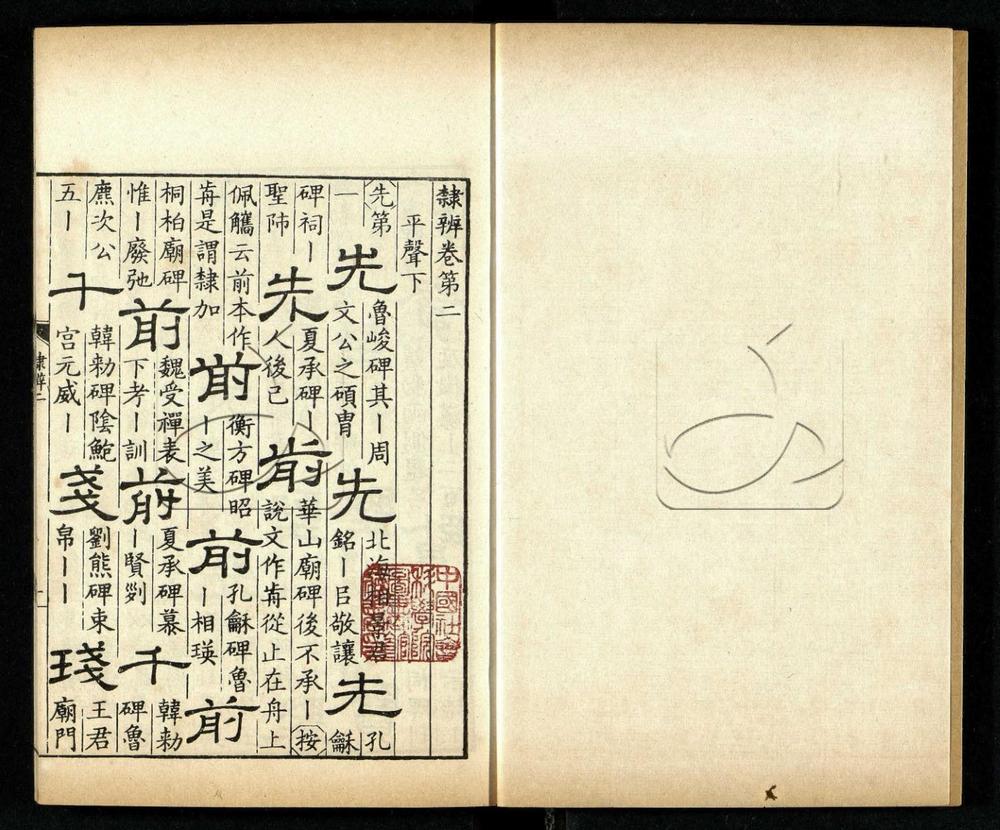 隸辨卷第二
平聲下
先第一 先 魯峻碑其丨周文公之碩冑 先 北海相景君銘丨㠯敬讓 先 孔龢
碑祠丨聖師 先 夏承碑丨人後己 歬 華山廟碑後不承丨按說文作歬從止在舟上
佩觿云前本作歬是謂隸加 前 衡方碑昭丨之美 前 孔龢碑魯丨相瑛 前
桐柏廟碑惟丨廢弛 前 魏受禪表下考丨訓 前 夏承碑慕丨賢𠛱 千 韓勑碑魯
麃次公五丨 千 韓勑碑陰鮑宮元威丨 戔 劉熊碑東帛丨丨 琖 王君廟門
隸辨二
中國社會科學院